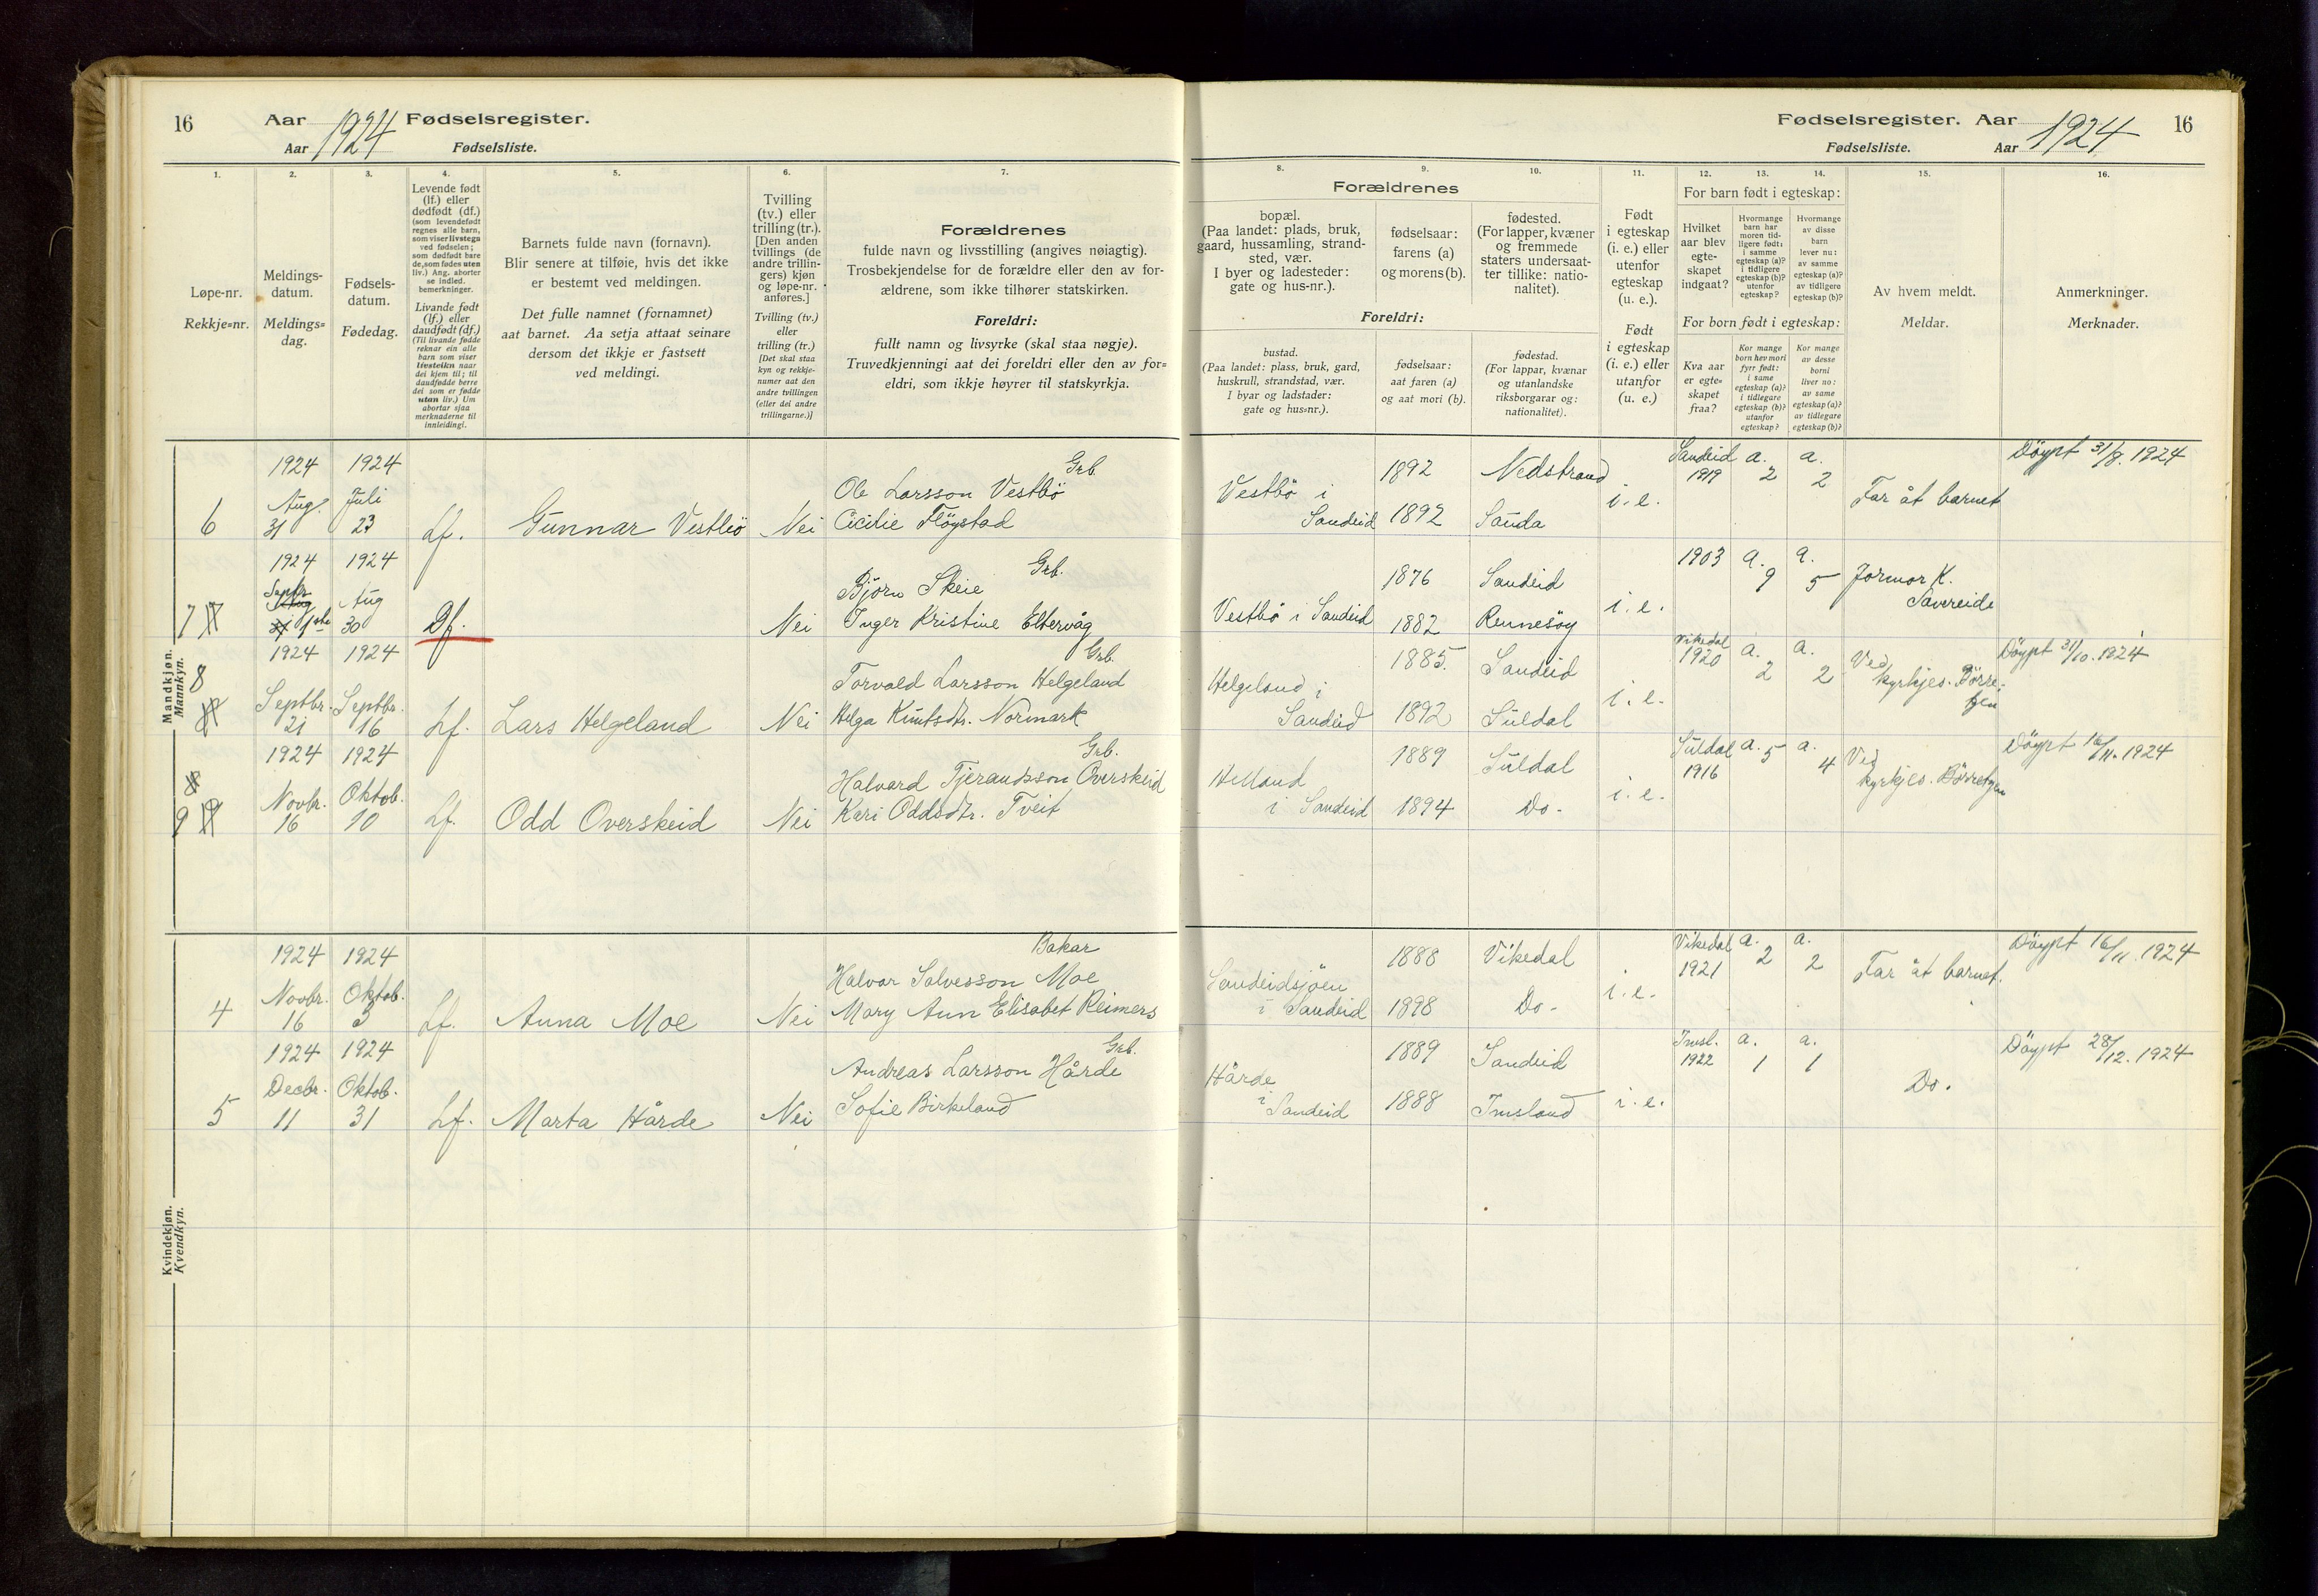 16
Aar 1924 Fødselsregister.
Aar Fødselsliste.
1.
2.
3.
4.
5.
6.
7.
Løpe-nr.
Rekkje=nr.
Meldings-
datum.
Meldings=
dag.
Fødsels-
datum.
Fødedag.
Levende født
(lf.) eller
dødfødt (df.)
(som levendefødt
regnes alle barn,
som viser livstegn
ved fødselen;
som dødfødt bare
de, som fødes uten
liv.) Ang. aborter
se indled.
bemerkninger.
Livande født
(lf.) eller
daudfødt (df.)
(Til livande fødde
reknar ein alle
barn som viser
livsteikn naar
dei kjem til; til
daudfødde berre
dei som er fødde
utan liv.) Um
abortar sjaa
merknaderne til
innleidingi.
Barnets fulde navn (fornavn).
Blir senere at tilføie, hvis det ikke
er bestemt ved meldingen.
Det fulle namnet (fornamnet)
aat barnet. Aa setja attaat seinare
dersom det ikkje er fastsett
ved meldingi.
Tvilling
(tv.) eller
trilling (tr.).
[Den anden
tvillings (de
andre trillin-
gers) kjøn
og løpe-nr.
anføres.]
Tvilling (tv.)
eller
trilling (tr.)
[Det skal staa
kyn og rekkje-
numer aat den
andre tvillingen
(eller dei andre
trillingarne.)]
Forældrenes
fulde navn og livsstilling (angives nøiagtig).
Trosbekjendelse for de forældre eller den av for-
ældrene, som ikke tilhører statskirken.
Foreldri:
fullt namn og livsyrke (skal staa nøgje).
Truvedkjenningi aat dei foreldri eller den av for=
eldri, som ikkje høyrer til statskyrkja.
Mandkjøn.
Mannkyn.
1924 1924 Grb.
Aug. Juli Ole Larsson Vestbö
6 31 23 Lf. Gunnar Vestbö Nei Cicilie Flöystad
1924 1924 Grb.
Septbr. Aug Björn Skeie
7 1ste 30 Df. Nei Inger Kristine Eltervåg
1924 1924 Grb.
8 Torvald Larsson Helgeland
Septbr. Septbr.
21 16 Lf. Lars Helgeland Nei Helga Knutsdtr. Normark
1924 1924 Grb.
8 Halvard Tjerandsson Overskeid
Novbr. Oktob.
9 16 10 Lf. Odd Overskeid Nei Kari Oddsdtr. Tveit
Kvindekjøn.
Kvendkyn.
1924 1924 Bakar
Novbr. Oktob. Halvor Salvesson Moe
4 16 3 Lf. Anna Moe Nei Mary Ann Elisabet Reimers
1924 1924 Grb.
Decbr. Oktob. Andreas Larsson Hårde
5 11 31 Lf. Marta Hårde Nei Sofie Birkeland
Fødselsregister. Aar 1924 16
Fødselsliste. Aar
8.
9.
10.
11.
12.
13.
14.
15.
16.
Forældrenes
bopæl.
(Paa landet: plads, bruk,
gaard, hussamling, strand-
sted, vær.
I byer og ladesteder:
gate og hus-nr.).
fødselsaar:
farens (a)
og morens (b).
fødested.
(For lapper, kvæner
og fremmede
staters undersaat-
ter tillike: natio-
nalitet).
Foreldri:
bustad.
(Paa landet: plass, bruk, gard,
huskrull, strandstad, vær.
I byar og ladstader:
gate og hus=nr.).
fødselsaar:
aat faren (a)
og aat mori (b).
fødestad.
(For lappar, kvænar
og utanlandske
riksborgarar og:
nationalitet).
Født
i egteskap
(i. e.) eller
utenfor
egteskap
(u. e.).
Født
i egteskap
(i. e.) eller
utanfor
(u. e.)
For barn født i egteskap:
Hvilket
aar blev
egte-
skapet
indgaat?
Hvormange
barn har
moren tid-
ligere født:
i samme
egteskap (a)?
i tidligere
egteskap (b)?
utenfor
egteskap?
Hvormange
av disse
barn
lever nu:
av samme
egteskap (a)?
av tidligere
egteskap (b)?
For born født i egteskap:
Kva aar
er egte=
skapet
fraa?
Kor mange
born hev mori
fyrr født:
i same
egteskap (a)?
i tidlegare
egteskap (b)?
utanfor
egteskap?
Kor mange
av desse
borni
liver no:
av same
egteskap (a)?
av tidlegare
egteskap (b)?
Av hvem meldt.
Meldar.
Anmerkninger.
Merknader.
Sandeid a. a. Döypt 31/8. 1924
1892 Nedstrand 1919 2 2
Vestbö i i. e. Far åt barnet
Sandeid 1892 Sauda
1903 a. a.
1876 Sandeid 9 5 Jormor K.
Vestbö i Sandeid i. e. Savereide
1882 Rennesöy
Vikedal Döypt 31/10. 1924
1885. Sandeid 1920 a. a. Ved
Helgeland i 2 2 kyrkjes. Börre-
i. e. tzen
Sandeid 1892 Suldal
1889 Suldal Suldal a. 5 a. 4 Ved Döypt 16/11. 1924
Helland 1916 kyrkjes. Börretzen
i Sandeid 1894 Do- i. e.
1888 Vikedal Vikedal a. a. Döypt 16/11. 1924
Sandeidsjöen 1921 2 2 Far åt barnet.
i Sandeid 1898 Do- i. e.
1889 Sandeid Imsl. a. a. Döypt 28/12. 1924
Hårde 1922 1 1
i Sandeid 1888 Imsland i. e. Do.